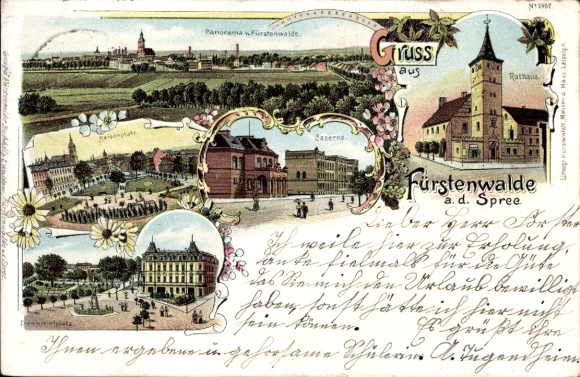 No 1907.
Panorama v. Fürstenwalde.
Gruss
aus
Rathaus.
Kaiserplatz.
Caserne.
Fürstenwalde
a.d. Spree.
Denkmalplatz.
Lieber Herr Förster
Ich weile hier zur Erholung,
danke vielmals für die Güte
das Sie mich den Urlaub bewilligt
haben, sonst hätte ich hier nicht
sein können. Es grüßt ihre
Ihnen ergebene u. gehorsame Schülerin. A. Jugendheim.